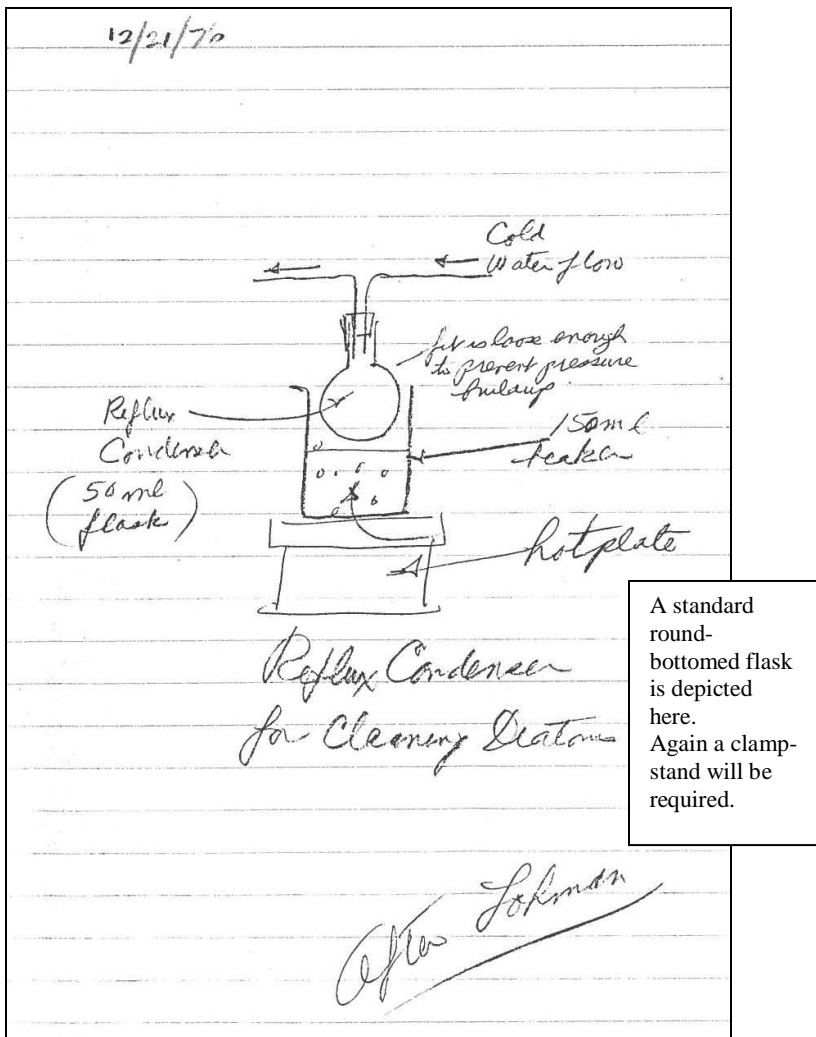 12/21/70
Cold
Water flow
fit is loose enough
to prevent pressure
buildup.
Reflux
Condenser
(50 ml
flask)
150 ml
beaker
hotplate
Reflux Condenser
for Cleaning Diatoms
A standard
round-
bottomed flask
is depicted
here.
Again a clamp-
stand will be
required.
After Lohman